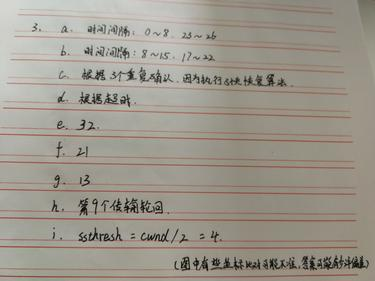 3. a. 时间间隔: 0~8. 23~26
b. 时间间隔: 8~15. 17~22
c. 根据3个重复确认. 因为执行了快恢复算法.
d. 根据超时.
e. 32.
f. 21
g. 13
h. 第9个传输轮回.
i. ssthresh = cwnd/2 = 4.
(图中有些坐标比对可能不准, 答案可能有少许偏差)